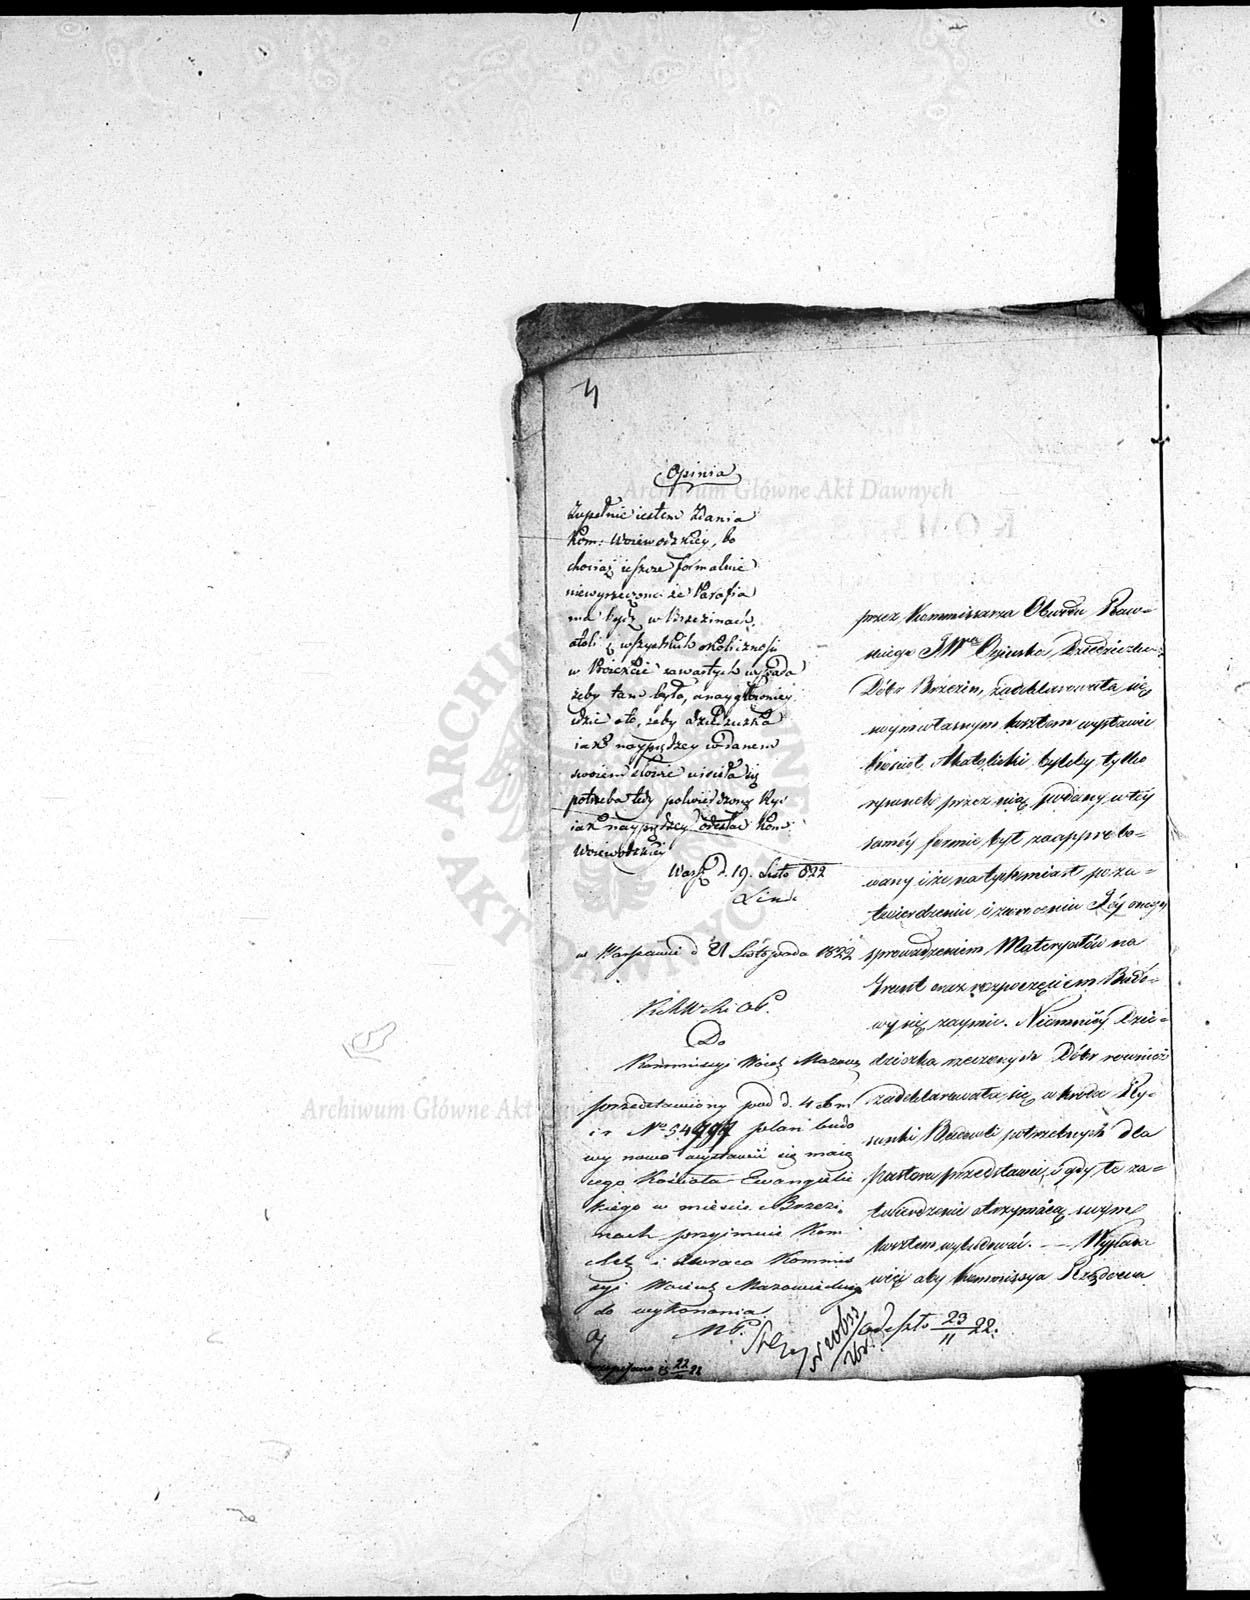 4
Opinia
Zupełnie iestem zdania
Kom: Woiewodzkiey, bo
chociaż ieszcze formalnie
niewyrzeczono że Parafia
ma bydź w Brzezinach,
atoli z wszystkich okoliczności
w Proiekcie zawartych wypada
żeby tam była, a naygłówniey
idzie oto, żeby dziedziczka
iak nayprędzey w danem
swoiem słowie uiściła się
potrzeba tedy potwierdzony Rys
iak nayprędzey odesłać Kom:
Woiewodzkiey
Warsz d. 19. Listo 822
Linde
w Warszawie d 21 Listopada 1822
Do
Kommissyi Woiew Mazow
przedstawiony pod d. 4 b m
i r No 54797 plan budo
wy nowo wystawić się maią
cego Kościoła Ewangelic
kiego w mieście Brzezi
nach przyimuie Kom
i zwraca Kommis
syi Woiew Mazowieckiey
do wykonania.
22
odeszło 23/11 22.
przez Kommissarza Obwodu Raw-
skiego JWna Ogińska Dziedziczka
Dóbr Brzezin, zadeklarowała się
swym własnym kosztem wystawić
Kościoł Akatolicki byleby tylko
rysunek przez nią podany w tey
saméy formie był zaapprobo-
wany i że natychmiast po za-
twierdzeniu i zwroceniu Jéy onego
sprowadzeniem Materyałów na
Grunt oraz rozpoczęciem Budo-
wy się zaymie. Niemniéy Dzie-
dziczka rzeczonych Dóbr rownież
zadeklarowała się wkrótce Ry-
sunki Budowli potrzebnych dla
Pastora przedstawić, i gdy te za-
twierdzenie otrzymaią swym
kosztem wybudować. — Wypada
więc aby Kommissya Rządowa